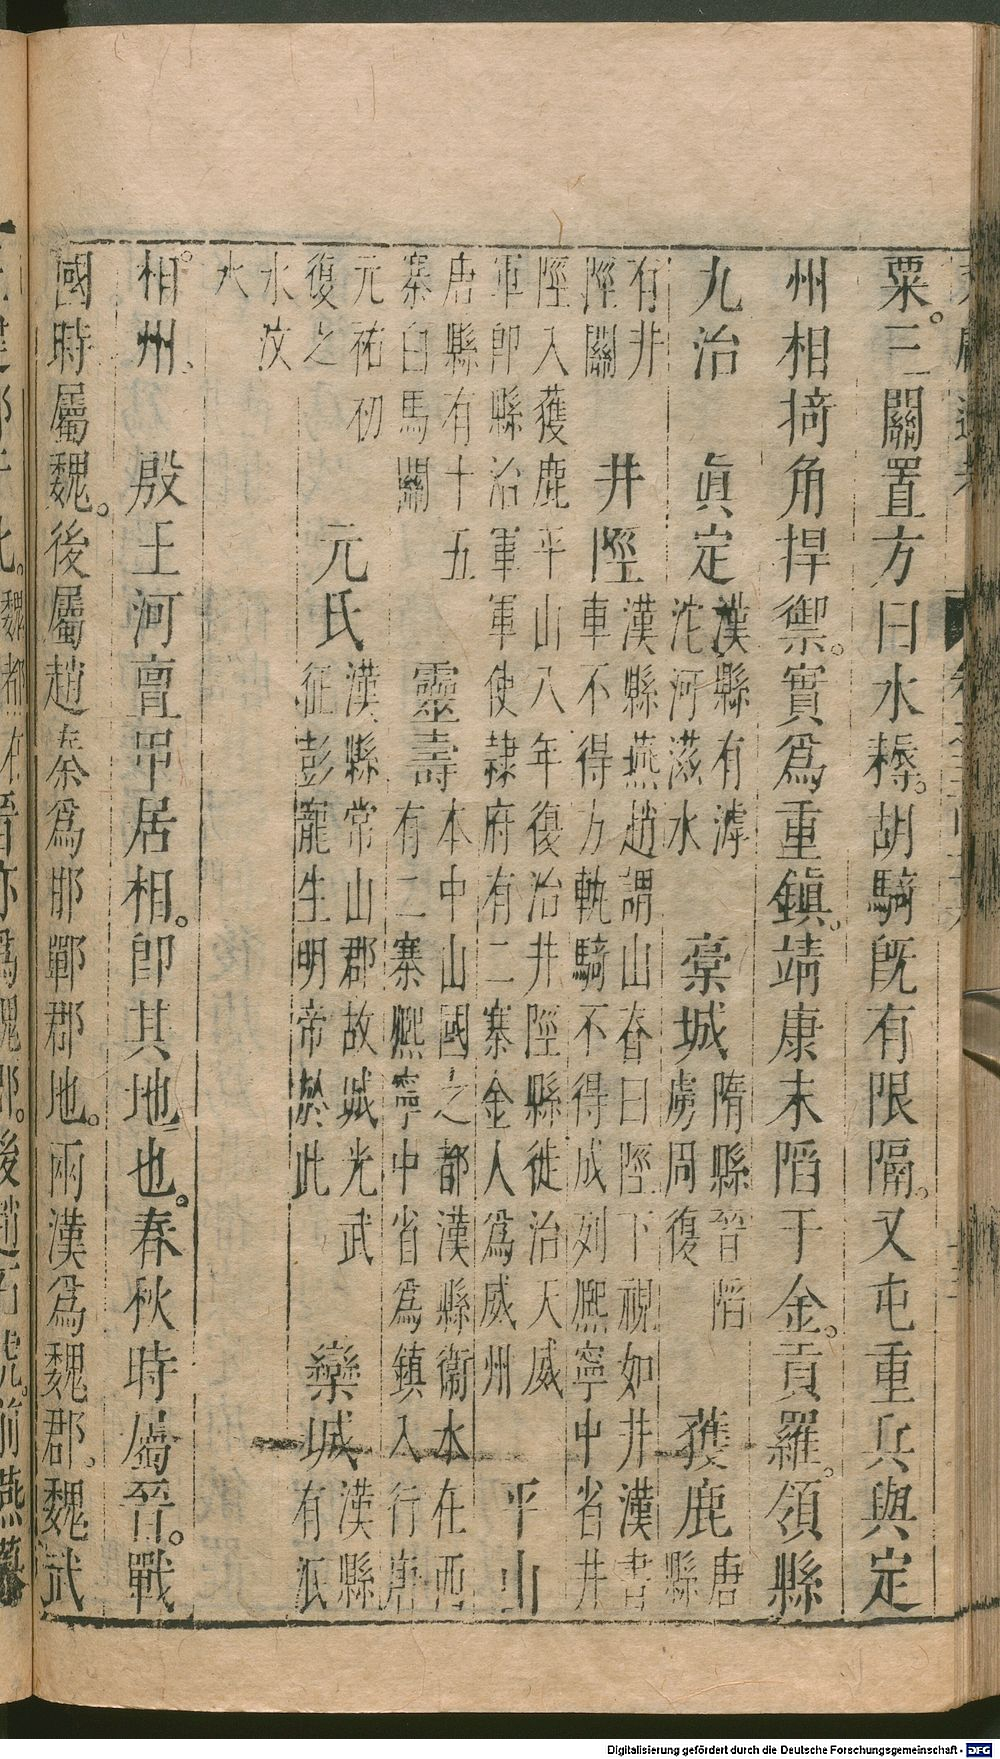 粟。三關置方曰水耨。胡騎旣有限隔。又屯重兵與定
州相掎角捍禦。實爲重鎮。靖康末陷于金。貢羅。領縣
九治　眞定
漢縣有滹
沱河滋水
槀城
隋縣晉陷
虜周復
獲鹿
唐
縣
有井
陘關
井陘
漢縣燕趙謂山脊曰陘下視如井漢書
車不得方軌騎不得成列熈寧中省井
陘入獲鹿平山八年復治井陘縣徙治天威
軍卽縣治軍軍使隷府有二寨金人爲威州
平山
唐縣有十五
寨白馬關
靈壽
本中山國之都漢縣衞水在西
有二寨熈寧中省爲鎮入行唐
元祐初
復之
元氏
漢縣常山郡故城光武
征彭寵生明帝於此
欒城
漢縣
有泒
水汶
水
相州。　殷王河亶甲居相。卽其地也。春秋時屬晉。戰
國時屬魏。後屬趙秦爲邯鄲郡地。兩漢爲魏郡。魏武
Digitalisierung gefördert durch die Deutsche Forschungsgemeinschaft - DFG